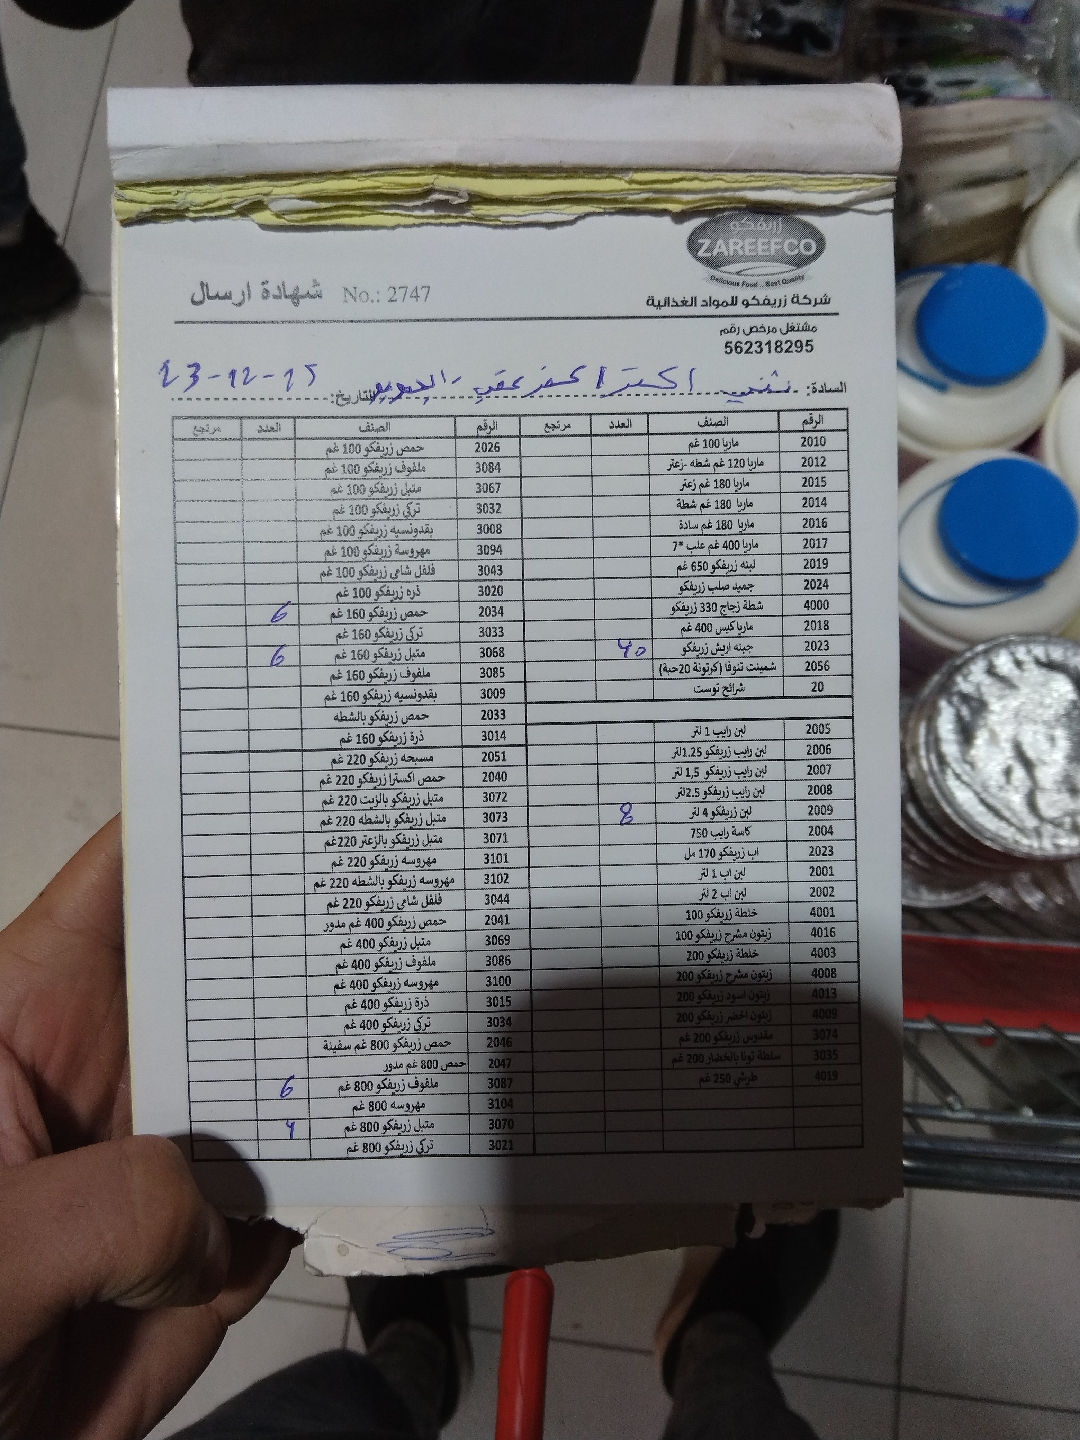 زريفكو
ZAREEFCO
Delicious Food...Best Quality
شركة زريفكو للمواد الغذائية
شهادة ارسال No.: 2747
مشتغل مرخص رقم
562318295
السادة: اكسترا كفر عقب - التاريخ: 23-12-25
الرقم الصنف العدد مرتجع
2010 ماريا 100 غم
2012 ماريا 120 غم شطه -زعتر
2015 ماريا 180 غم زعتر
2014 ماريا 180 غم شطة
2016 ماريا 180 غم سادة
2017 ماريا 400 غم علب *7
2019 لبنه زريفكو 650 غم
2024 جميد صلب زريفكو
4000 شطة زجاج 330 زريفكو
2018 ماريا كيس 400 غم
2023 جبنه اريش زريفكو 40
2056 شمينت تنوفا (كرتونة 20حبة)
20 شرائح توست
2005 لبن رايب 1 لتر
2006 لبن رايب زريفكو 1.25لتر
2007 لبن رايب زريفكو 1,5 لتر
2008 لبن رايب زريفكو 2.5لتر
2009 لبن زريفكو 4 لتر 8
2004 كاسة رايب 750
2023 اب زريفكو 170 مل
2001 لبن اب 1 لتر
2002 لبن اب 2 لتر
4001 خلطة زريفكو 100
4016 زيتون مشرح زريفكو 100
4003 خلطة زريفكو 200
4008 زيتون مشرح زريفكو 200
4013 زيتون اسود زريفكو 200
4009 زيتون اخضر زريفكو 200
3074 مقدوس زريفكو 200 غم
3035 سلطة تونا بالخضار 200 غم
4019 طرشي 250 غم
الرقم الصنف العدد مرتجع
2026 حمص زريفكو 100 غم
3084 ملفوف زريفكو 100 غم
3067 متبل زريفكو 100 غم
3032 تركي زريفكو 100 غم
3008 بقدونسيه زريفكو 100 غم
3094 مهروسة زريفكو 100 غم
3043 فلفل شامي زريفكو 100 غم
3020 ذره زريفكو 100 غم
2034 حمص زريفكو 160 غم 6
3033 تركي زريفكو 160 غم
3068 متبل زريفكو 160 غم 6
3085 ملفوف زريفكو 160 غم
3009 بقدونسيه زريفكو 160 غم
2033 حمص زريفكو بالشطه
3014 ذرة زريفكو 160 غم
2051 مسبحه زريفكو 220 غم
2040 حمص اكسترا زريفكو 220 غم
3072 متبل زريفكو بالزيت 220 غم
3073 متبل زريفكو بالشطه 220 غم
3071 متبل زريفكو بالزعتر 220غم
3101 مهروسه زريفكو 220 غم
3102 مهروسه زريفكو بالشطه 220 غم
3044 فلفل شامي زريفكو 220 غم
2041 حمص زريفكو 400 غم مدور
3069 متبل زريفكو 400 غم
3086 ملفوف زريفكو 400 غم
3100 مهروسه زريفكو 400 غم
3015 ذرة زريفكو 400 غم
3034 تركي زريفكو 400 غم
2046 حمص زريفكو 800 غم سفينة
2047 حمص 800 غم مدور
3087 ملفوف زريفكو 800 غم 6
3104 مهروسه 800 غم
3070 متبل زريفكو 800 غم
3021 تركي زريفكو 800 غم